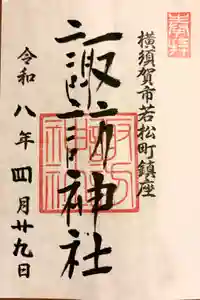 奉拝
横須賀市若松町鎮座
諏訪神社
令和八年四月廿九日